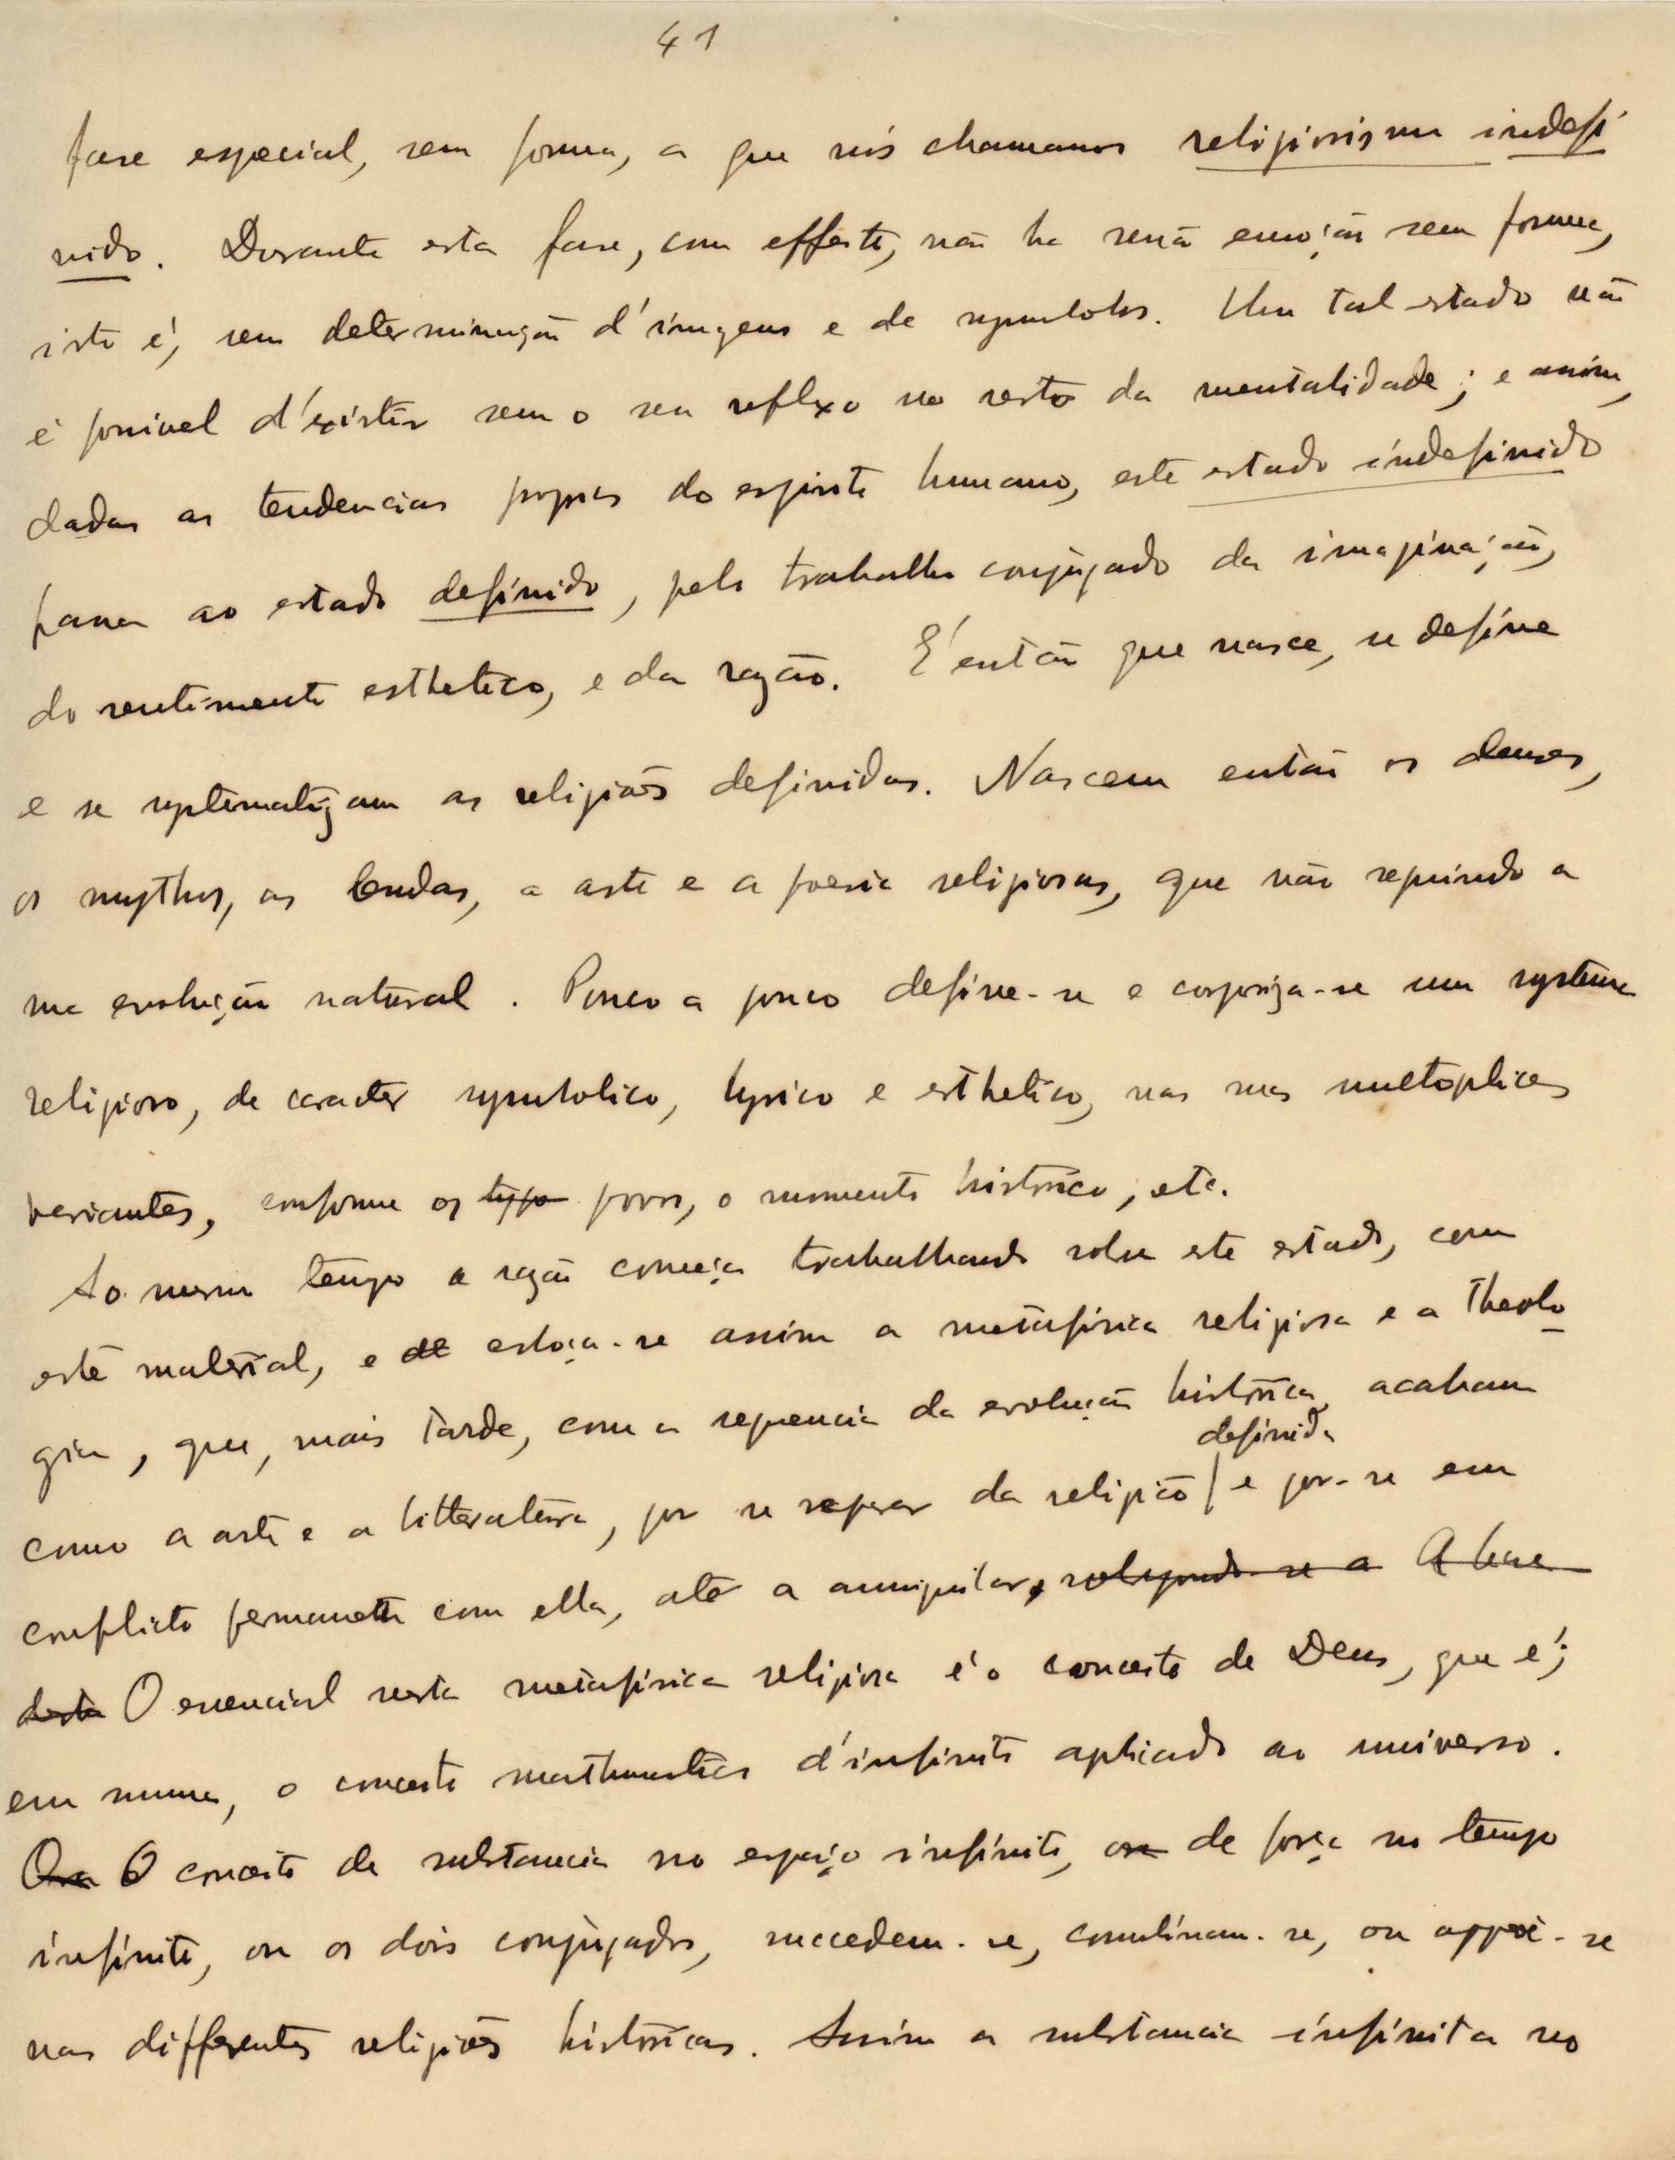 41
fase especial, sem forma, a que nós chamamos religiosismo indefi
nido. Durante esta fase, com effeito, não ha senão emoção sem forma,
isto é, sem determinação d'imagens e de symbolos. Um tal estado não
é possivel d'existir sem o seu reflexo no resto da mentalidade; e assim,
dadas as tendencias proprias do espirito humano, este estado indefinido
passa ao estado definido, pelo trabalho conjugado da imaginação,
do sentimento esthetico, e da razão. É então que nasce, se define
e se systematizam as religiões definidas. Nascem então os deuses,
os mythos, as lendas, a arte e a poesia religiosas, que vão seguindo a
sua evolução natural. Pouco a pouco define-se e corporiza-se um systema
religioso, de caracter symbolico, lyrico e esthetico, nas suas multiplices
variantes, conforme os typo povos, o momento historico, etc.
Ao mesmo tempo a razão começa trabalhando sobre este estado, com
este material, e de esboça-se assim a metafisica religiosa e a theolo
gia, que, mais tarde, com a sequencia da evolução historica, acabam
definida
como a arte e a litteratura, por se separar da religião / e por-se em
conflicto permanente com ella, até a anniquilar, A base
desta O essencial nesta metafisica religiosa é o conceito de Deus, que é,
em summa, o conceito mathematico d'infinito aplicado ao universo.
Ora O conceito de substancia no espaço infinito, ou de força no tempo
infinito, ou os dois conjugados, succedem-se, combinam-se, ou oppõe-se
nas differentes religiões historicas. Assim a substancia infinita no